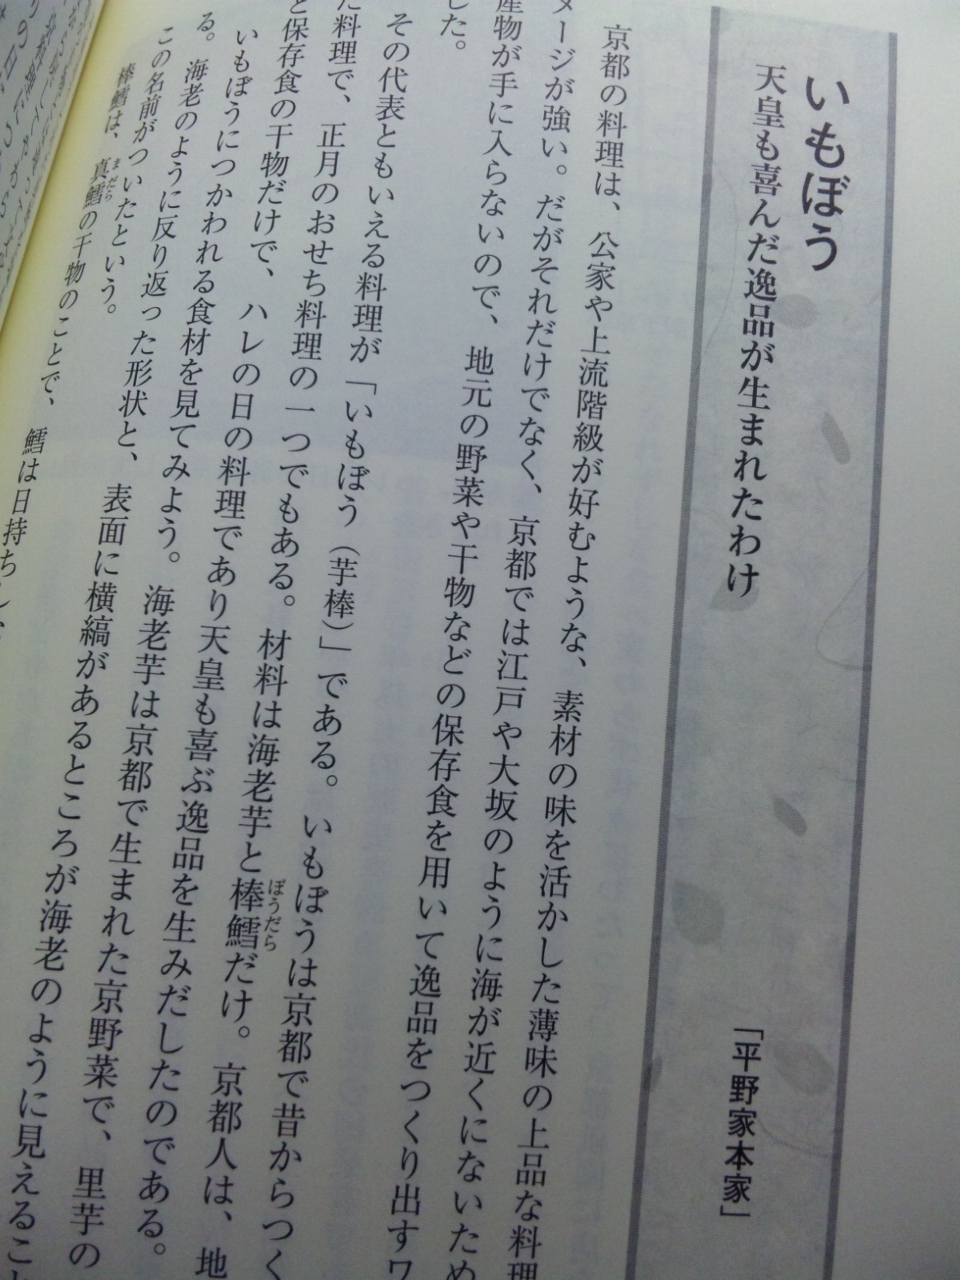 いもぼう
天皇も喜んだ逸品が生まれたわけ
「平野家本家」
京都の料理は、公家や上流階級が好むような、素材の味を活かした薄味の上品な料理
メージが強い。だがそれだけでなく、京都では江戸や大坂のように海が近くにないため
産物が手に入らないので、地元の野菜や干物などの保存食を用いて逸品をつくり出すワ
した。
その代表ともいえる料理が「いもぼう（芋棒）」である。いもぼうは京都で昔からつく
た料理で、正月のおせち料理の一つでもある。材料は海老芋と棒鱈だけ。京都人は、地
ぼうだら
と保存食の干物だけで、ハレの日の料理であり天皇も喜ぶ逸品を生みだしたのである。
いもぼうにつかわれる食材を見てみよう。海老芋は京都で生まれた京野菜で、里芋の
る。海老のように反り返った形状と、表面に横縞があるところが海老のように見えるこ
この名前がついたという。
棒鱈は、真鱈の干物のことで、鱈は日持ちし
まだら